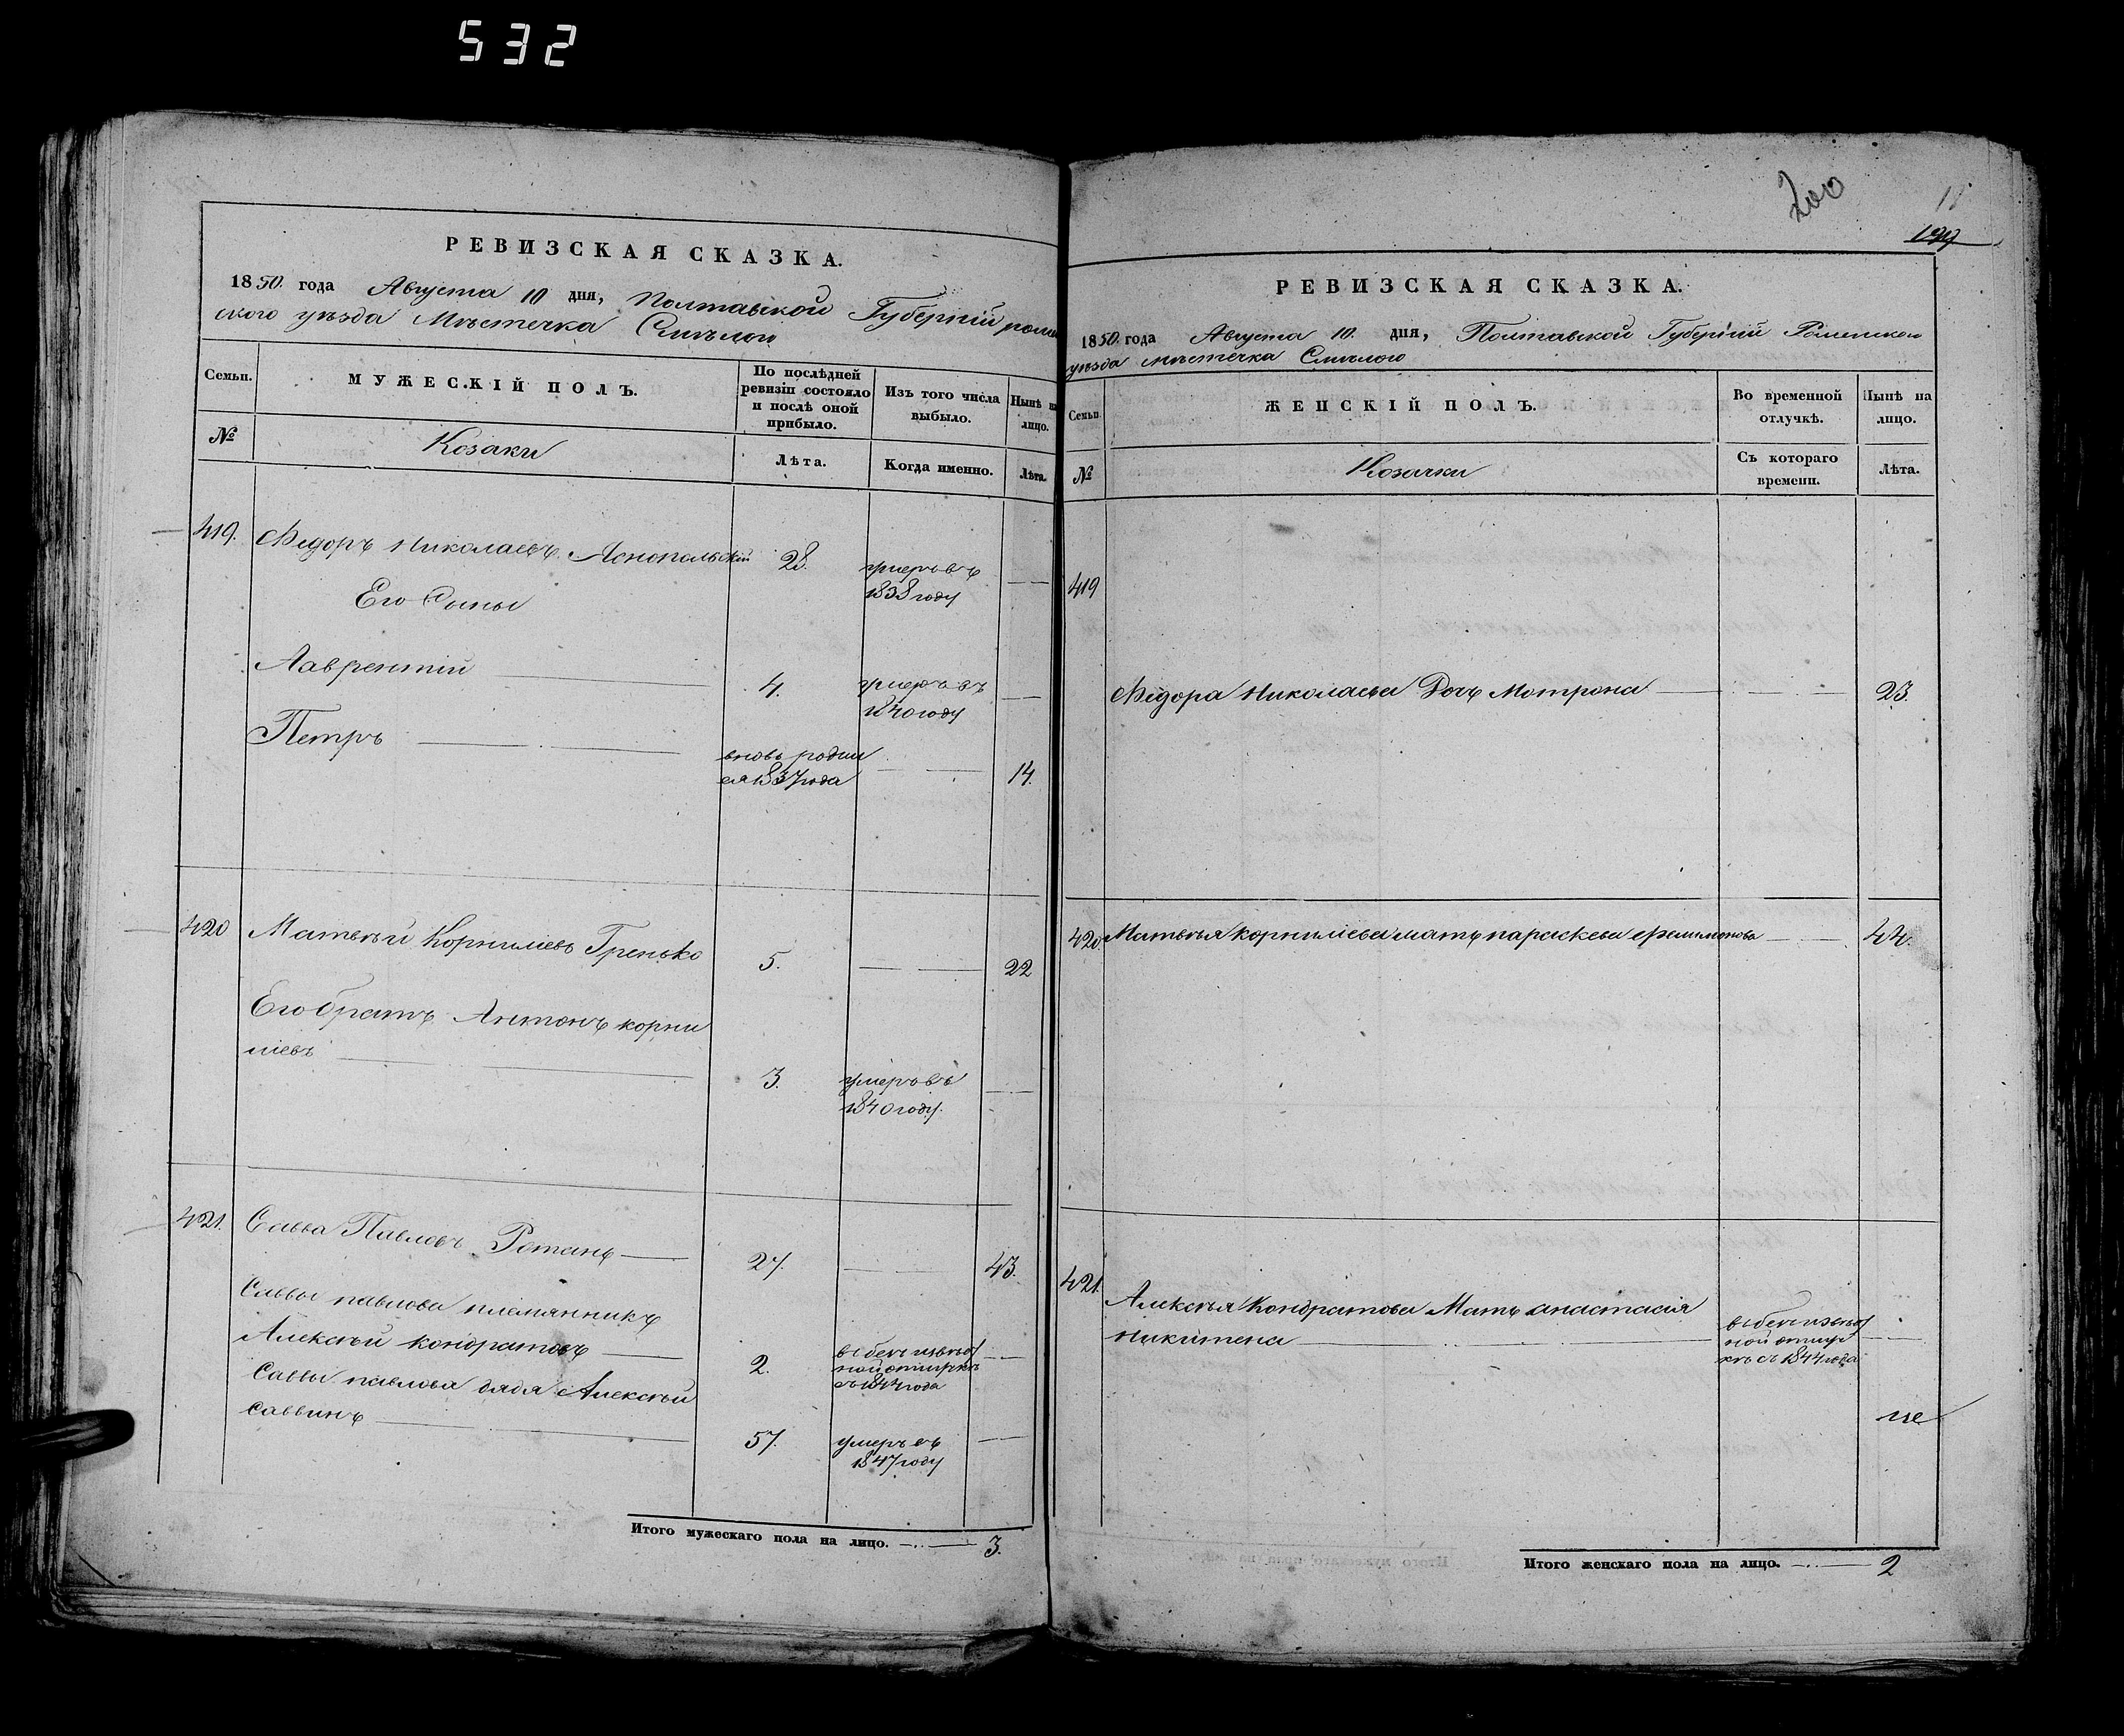 532
РЕВИЗСКАЯ СКАЗКА.
1850. года Августа 10 дня, Полтавской Губерніи ромен
ского уезда Местечка Смелого
Семьи.
МУЖЕСКІЙ ПОЛЪ.
По послѣдней ревизіи состояло и послѣ оной прибыло.
Изъ того числа выбыло.
Нынѣ на лицо.
№
Козаки
Лѣта.
Когда именно.
Лѣта.
419. Федоръ Николаевъ Яснопольскій 28. умеръ въ
1838 году
Его Сыны
Лаврентій 4. умеръ въ
1840 году
Петръ вновь родил
ся 1837 года 14.
420 Матвѣй Корниліевъ Гренько 5. 22
Его братъ Антонъ корни
ліевъ 3. умеръ въ
1840 году.
421. Савва Павловъ Ротань 27. 43.
Саввы павлова племянникъ
Алексѣй кондратовъ 2.
съ 1844 года
Саввы павлова дядя Алексѣй
саввинъ 57. умеръ въ
1847 году
Итого мужескаго пола на лицо. 3.
200
199
РЕВИЗСКАЯ СКАЗКА.
1850. года Августа 10. дня, Полтавской Губерніи Роменского
уѣзда мѣстечка Смѣлого
Семьи
ЖЕНСКІЙ ПОЛЪ.
Во временной отлучкѣ.
Нынѣ на лицо.
№
Козачки
Съ котораго времени.
Лѣта.
419
Федора Николаева Дочь Мотрона 23.
420 Матвѣя корниліева мать параскева 44.
421. Алексѣя Кондратова Мать анастасія
никитена
ной отлуч
кѣ съ 1844 года
Итого женскаго пола на лицо. 2